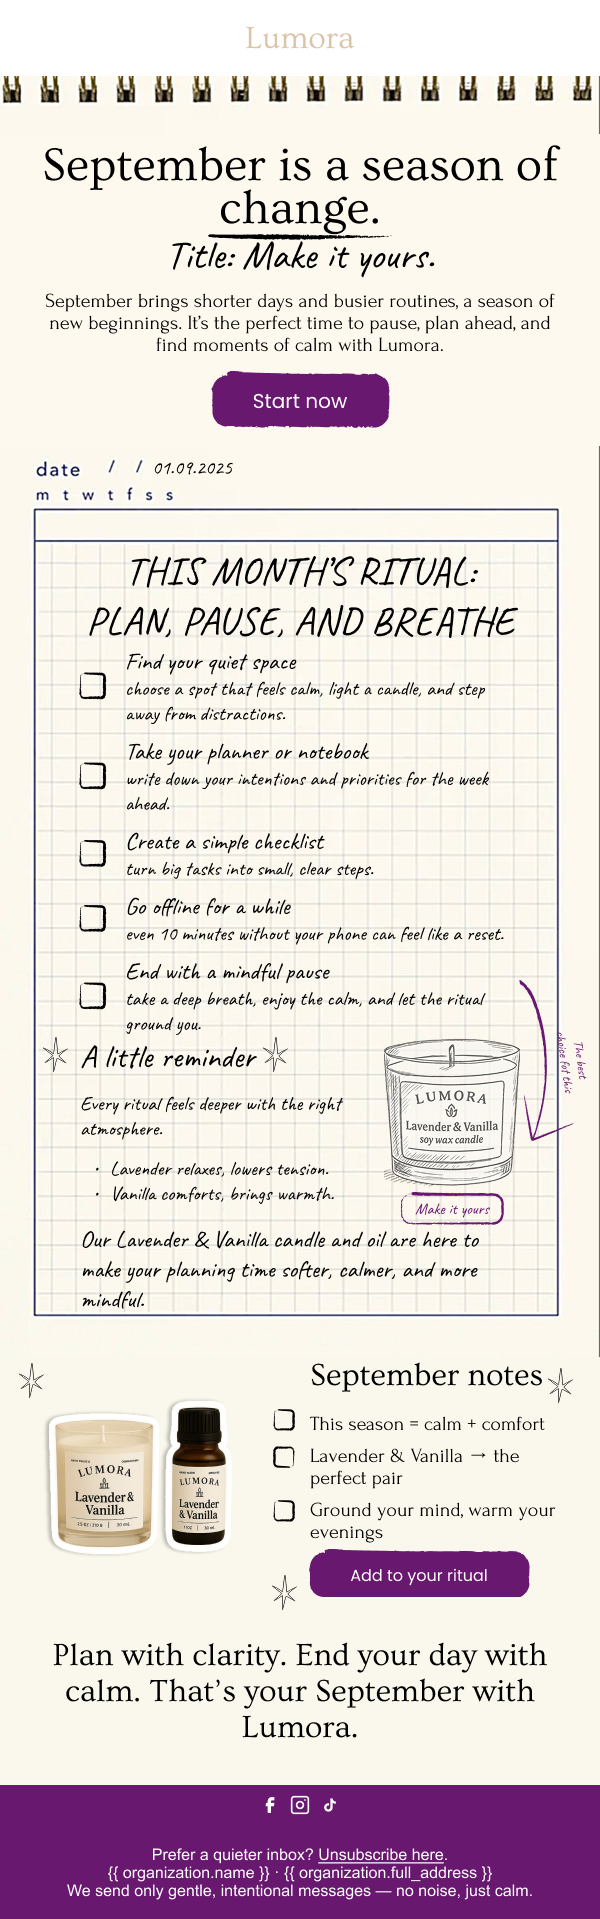 Lumora
September is a season of
change.
Title: Make it yours.
September brings shorter days and busier routines, a season of
new beginnings. It's the perfect time to pause, plan ahead, and
find moments of calm with Lumora.
Start now
date / / 01.09.2025
m t w t f s s
THIS MONTH'S RITUAL:
PLAN, PAUSE, AND BREATHE
Find your quiet space
choose a spot that feels calm, light a candle, and step
away from distractions.
Take your planner or notebook
write down your intentions and priorities for the week
ahead.
Create a simple checklist
turn big tasks into small, clear steps.
Go offline for a while
even 10 minutes without your phone can feel like a reset.
End with a mindful pause
take a deep breath, enjoy the calm, and let the ritual
ground you.
A little reminder
Every ritual feels deeper with the right
atmosphere.
• Lavender relaxes, lowers tension.
• Vanilla comforts, brings warmth.
The best
choise fot this
LUMORA
Lavender & Vanilla
soy wax candle
Make it yours
Our Lavender & Vanilla candle and oil are here to
make your planning time softer, calmer, and more
mindful.
September notes
This season = calm + comfort
Lavender & Vanilla → the
perfect pair
Ground your mind, warm your
evenings
Add to your ritual
LUMORA
Lavender &
Vanilla
30 mL
LUMORA
Lavender
& Vanilla
1 OZ | 30 mL
Plan with clarity. End your day with
calm. That's your September with
Lumora.
Prefer a quieter inbox? Unsubscribe here.
{{ organization.name }} · {{ organization.full_address }}
We send only gentle, intentional messages — no noise, just calm.